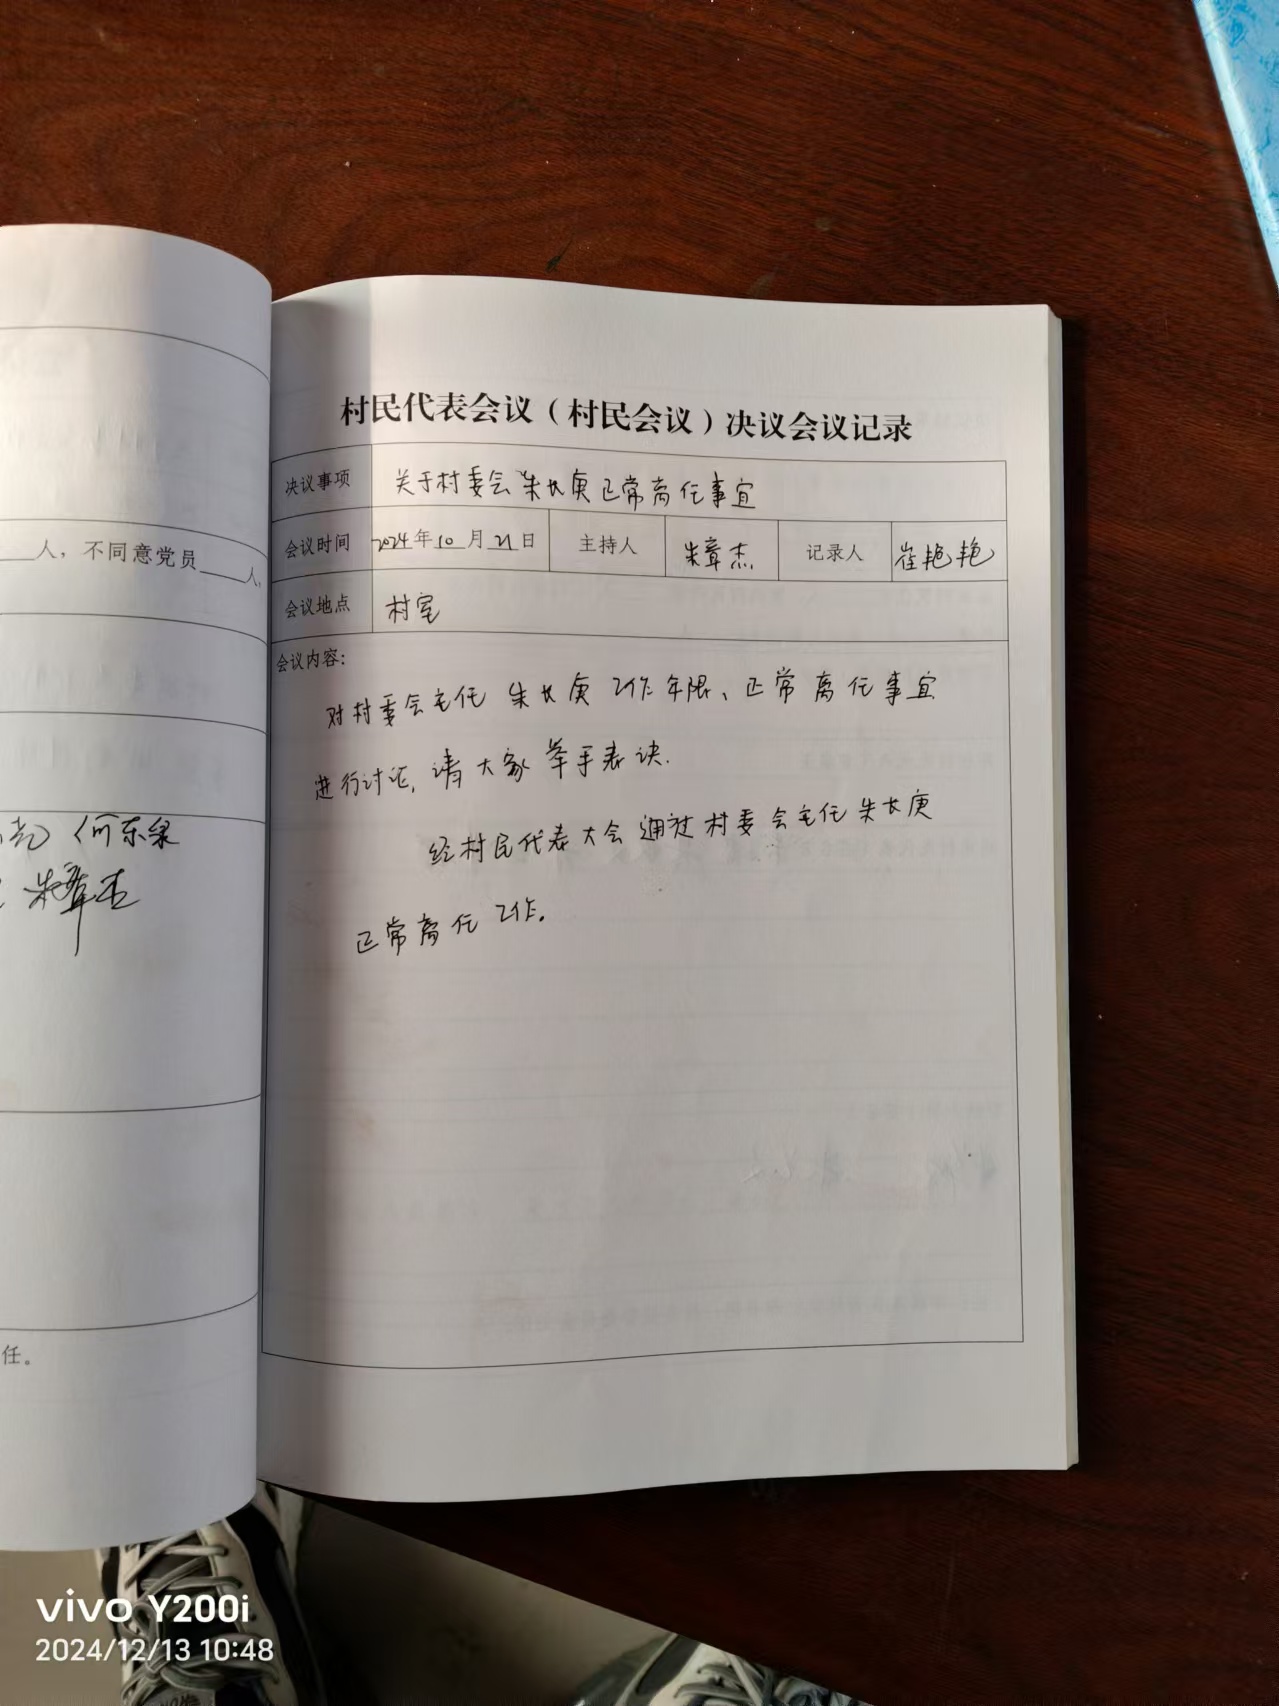 人，不同意党员 人，
何东绿
朱章杰
任。
村民代表会议（村民会议）决议会议记录
决议事项 关于村委会朱长庚正常离任事宜
会议时间 2024年10月21日 主持人 朱章杰 记录人 崔艳艳
会议地点 村室
会议内容：
对村委会主任 朱长庚 工作年限、正常离任事宜
进行讨论，请大家举手表决.
经村民代表大会通过村委会主任朱长庚
正常离任工作。
vivo Y200i
2024/12/13 10:48